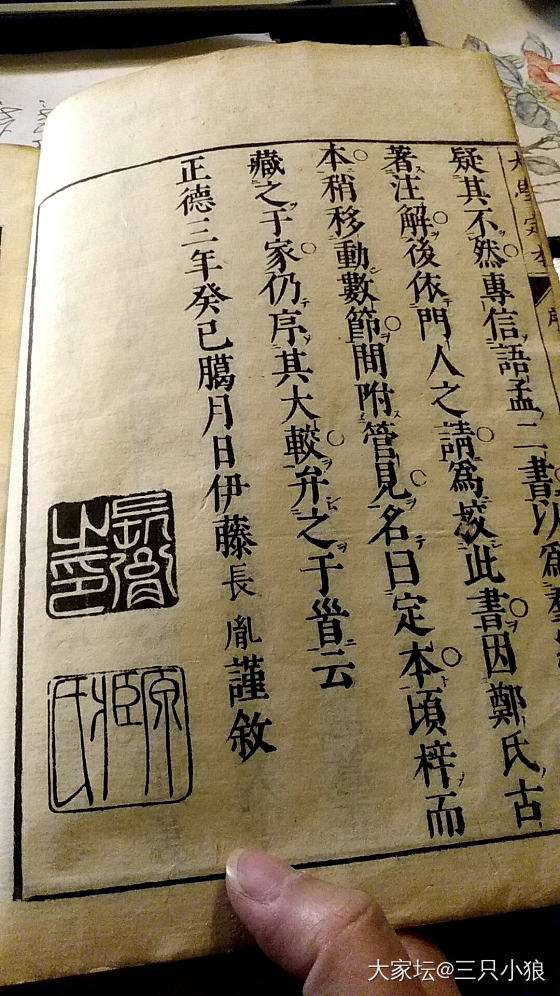 疑其不然專信語孟二書以爲
著注解後依門人之請爲挍此書因鄭氏古
本稍移動數節間附管見名曰定本頃梓而
藏之于家仍序其大較弁之于首云
正德三年癸巳臈月日伊藤長胤謹敘
長胤之印
原臧氏
大家坛@三只小狼